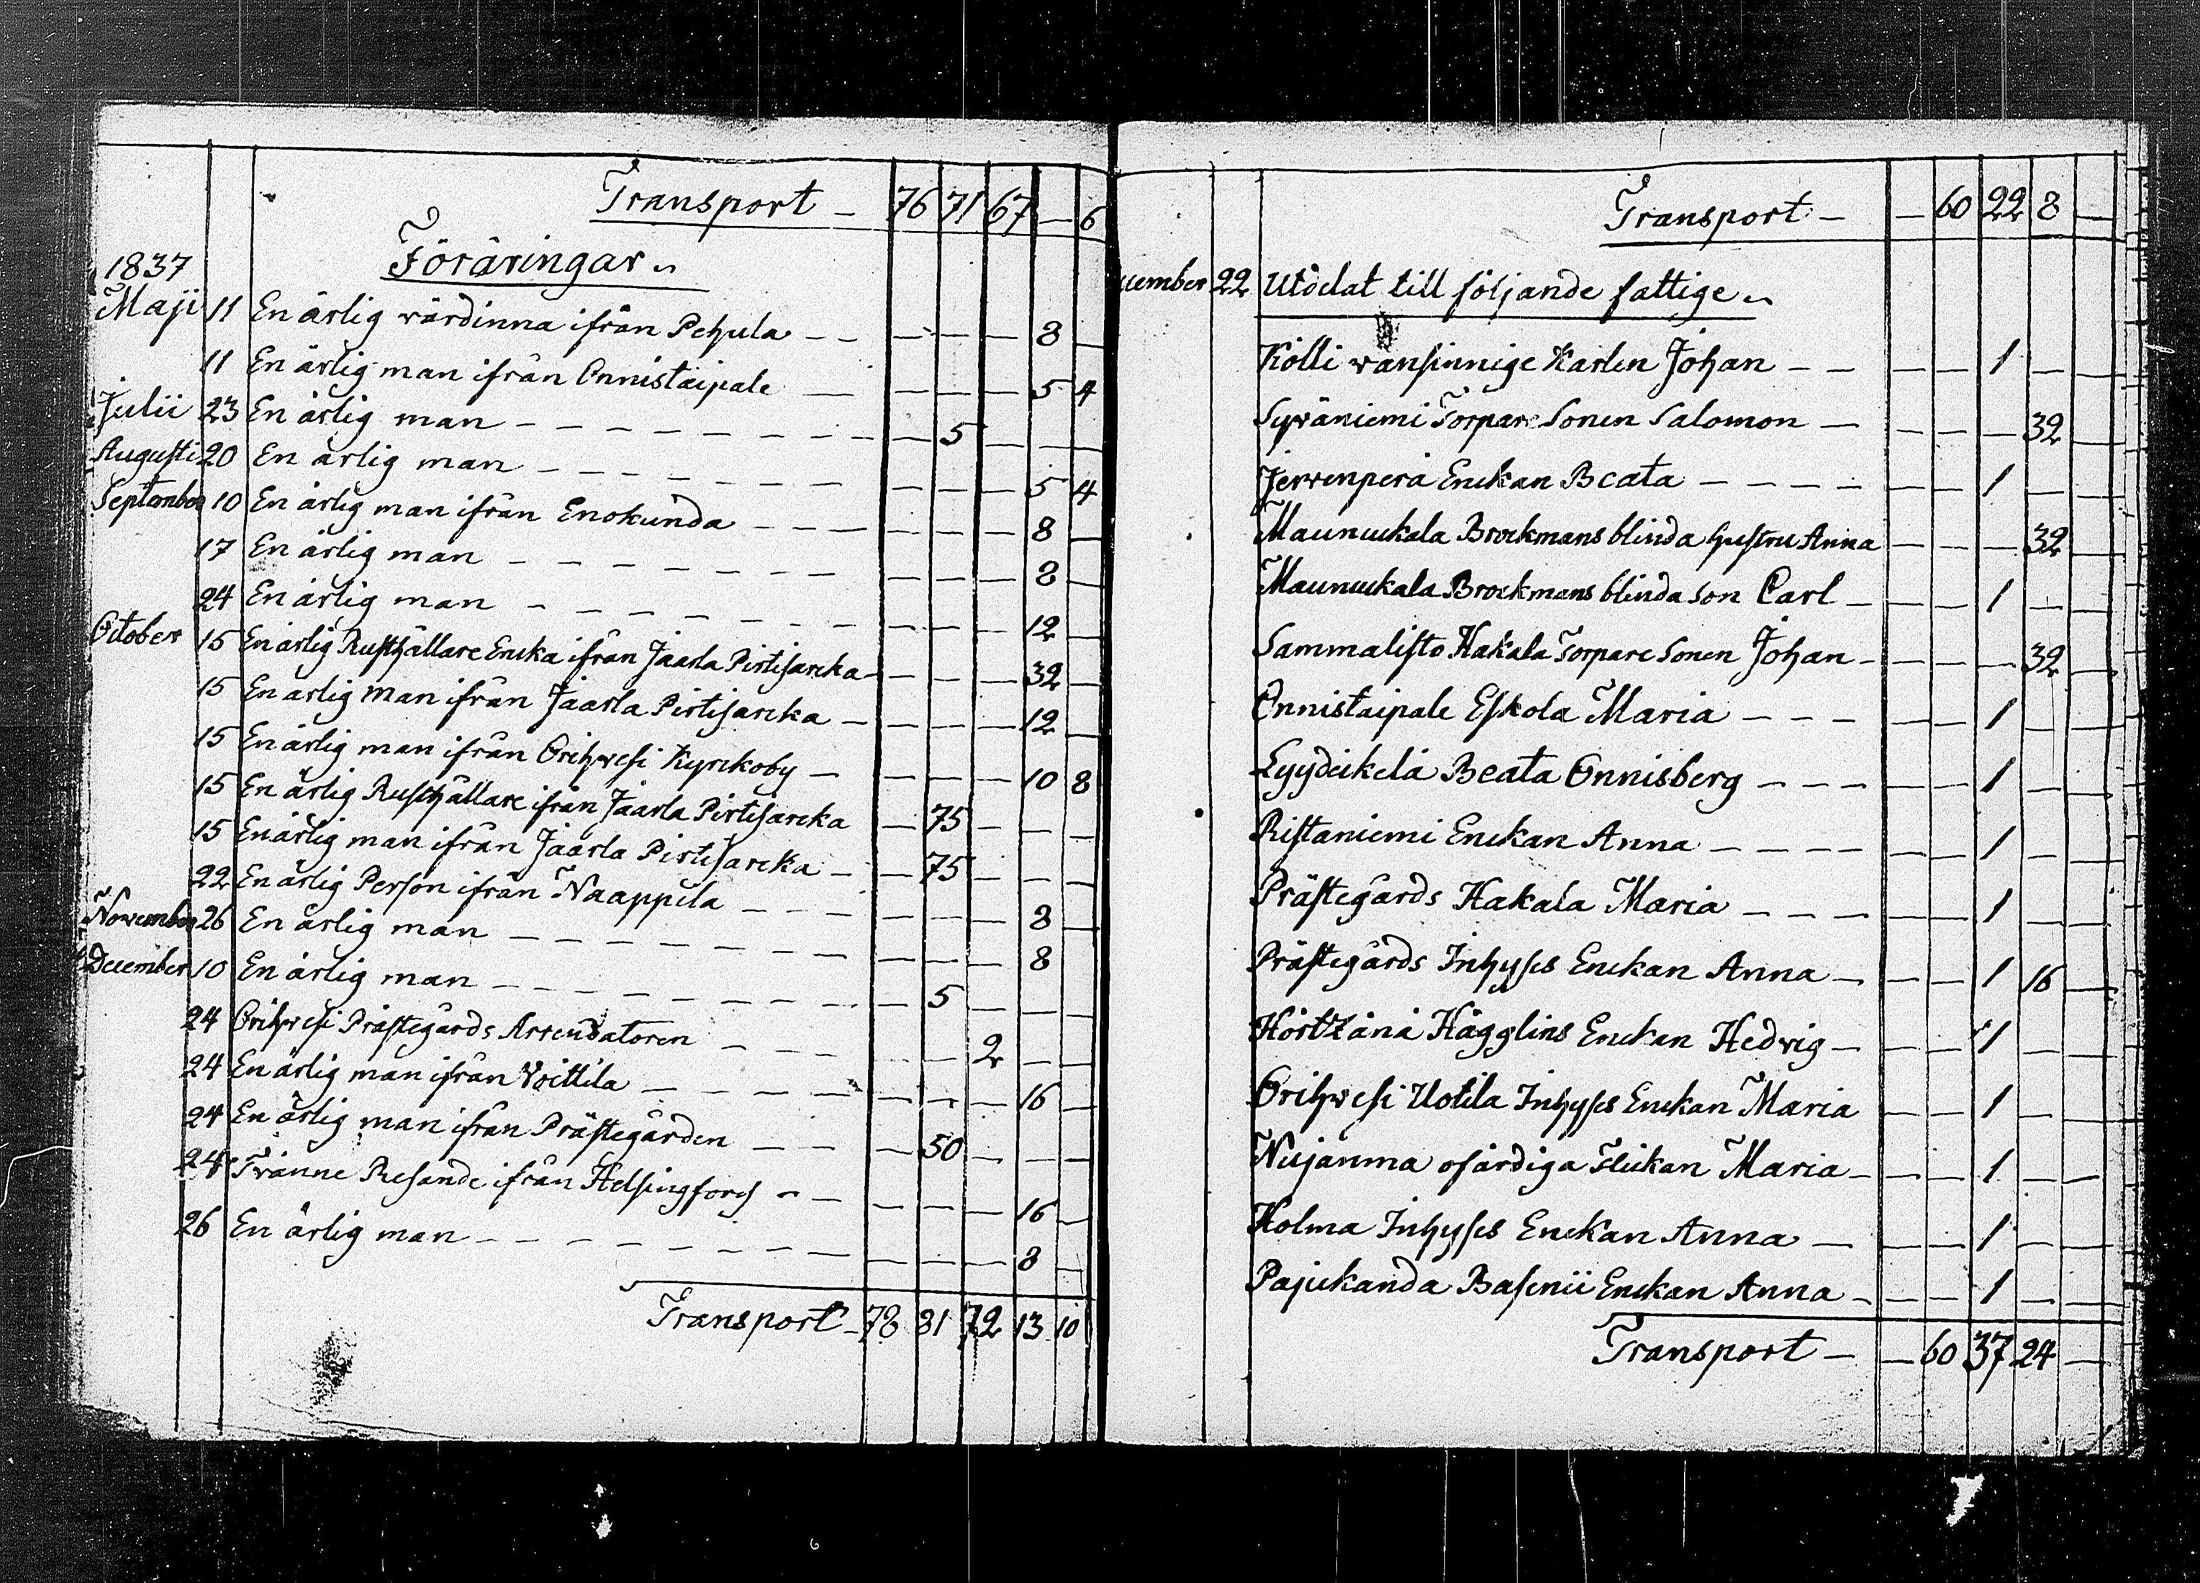 Transport — 76 71 67 — 6
Föräringar
1837
Maji 11 En ärlig värdinna ifrån Pehula — — — — — 8 —
11 En ärlig man ifrån Onnistaipale — — — — 5 4
Julii 23 En ärlig man — — 5 — — —
Augusti 20 En ärlig man — — — — 5 4
September 10 En ärlig man ifrån Enokunda — — — — 8 —
17 En ärlig man — — — — 8 —
24 En ärlig man — — — — 12 —
October 15 En ärlig Rusthållare Encka ifrån Jäärla Pirtisarcka — — — 32 —
15 En ärlig man ifrån Jäärla Pirtisarcka — — — — 12 —
15 En ärlig man ifrån Orihvesi Kyrckoby — — — — 10 8
15 En ärlig Rusthållare ifrån Jäärla Pirtisarcka — 75 — — —
15 En ärlig man ifrån Jäärla Pirtisarcka — — 75 — — —
22 En ärlig Person ifrån Naappila — — — — 8
November 26 En ärlig man — — — — 8
December 10 En ärlig man — — 5 — — —
24 Orihvesi Prästegårds Arrendatoren — — — 2 — —
24 En ärlig man ifrån Voittila — — — — 16 —
24 En ärlig man ifrån Prästegården — — 50 — — —
24 Tvänne Resande ifrån Helsingfors — — — — 16 —
26 En ärlig man — — — — 8 —
Transport — 78 81 72 13 10
Transport — — 60 22 8 —
cember 22 Utdelat till följande fattige
Kölli vansinnige Karlen Johan — — — 1 — —
Syväniemi Torpare Sonen Salomon — — — — 32 —
Jervenperä Enckan Beata — — — 1 — —
Maunuckala Brockmans blinda hustru Anna — — — 32 —
Maunuckala Brockmans blinda son Carl — — — 1 — —
Sammalisto Hakala Torpare Sonen Johan — — — — 32 —
Onnistaipale Eskola Maria — — — 1 — —
Lyydeikelä Beata Onnisberg — — — 1 — —
Ristaniemi Enckan Anna — — — 1 — —
Prästegårds Hakala Maria — — — 1 — —
Prästegårds Inhyses Enckan Anna — — — 1 16 —
Hägglins Enckan Hedvig — — — 1 — —
Orihvesi Uotila Inhyses Enckan Maria — — 1 — —
ofärdiga Flickan Maria — — — 1 — —
Holma Inhyses Enckan Anna — — — 1 — —
Pajukanda Basenii Enckan Anna — — — 1 — —
Transport — — 60 37 24 —